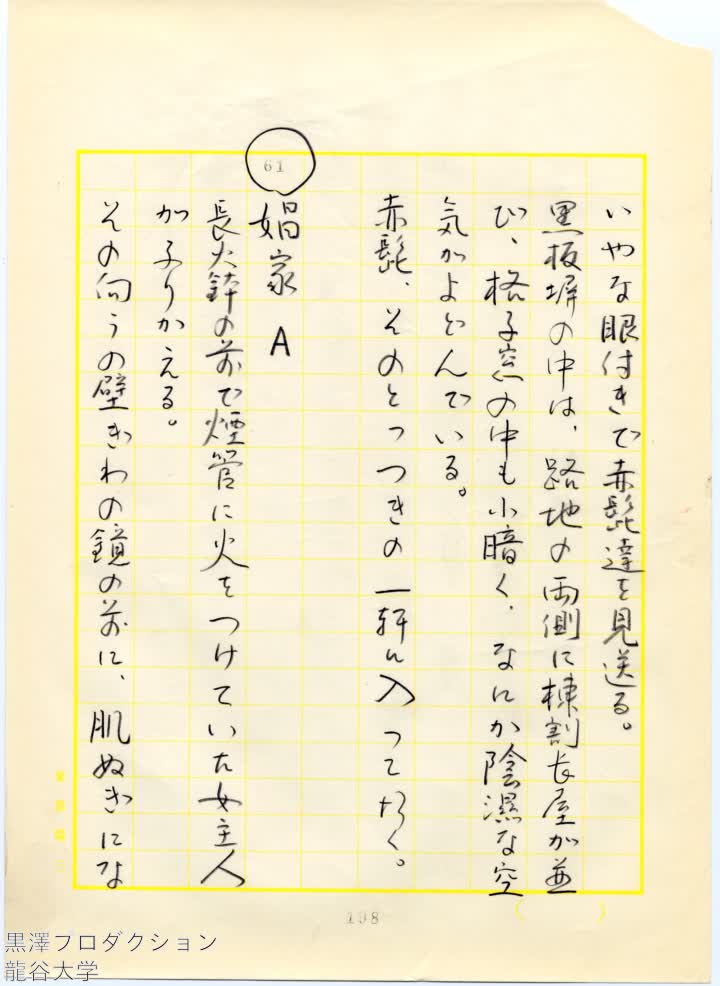 いやな眼付きで赤髭達を見送る。
黒板塀の中は、路地の両側に棟割長屋が並
び、格子窓の中も小暗く、なにか陰湿な空
気がよどんでいる。
赤髭、そのとっつきの一軒に入って行く。
61
娼家 A
長火鉢の前で煙管に火をつけていた女主人
がふりかえる。
その向うの壁ぎわの鏡の前に、肌ぬぎにな
198
黒澤プロダクション
龍谷大学